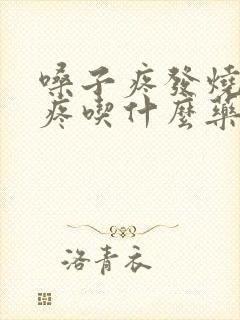 嗓子疼發燒
疼喫什麼藥
洛青衣